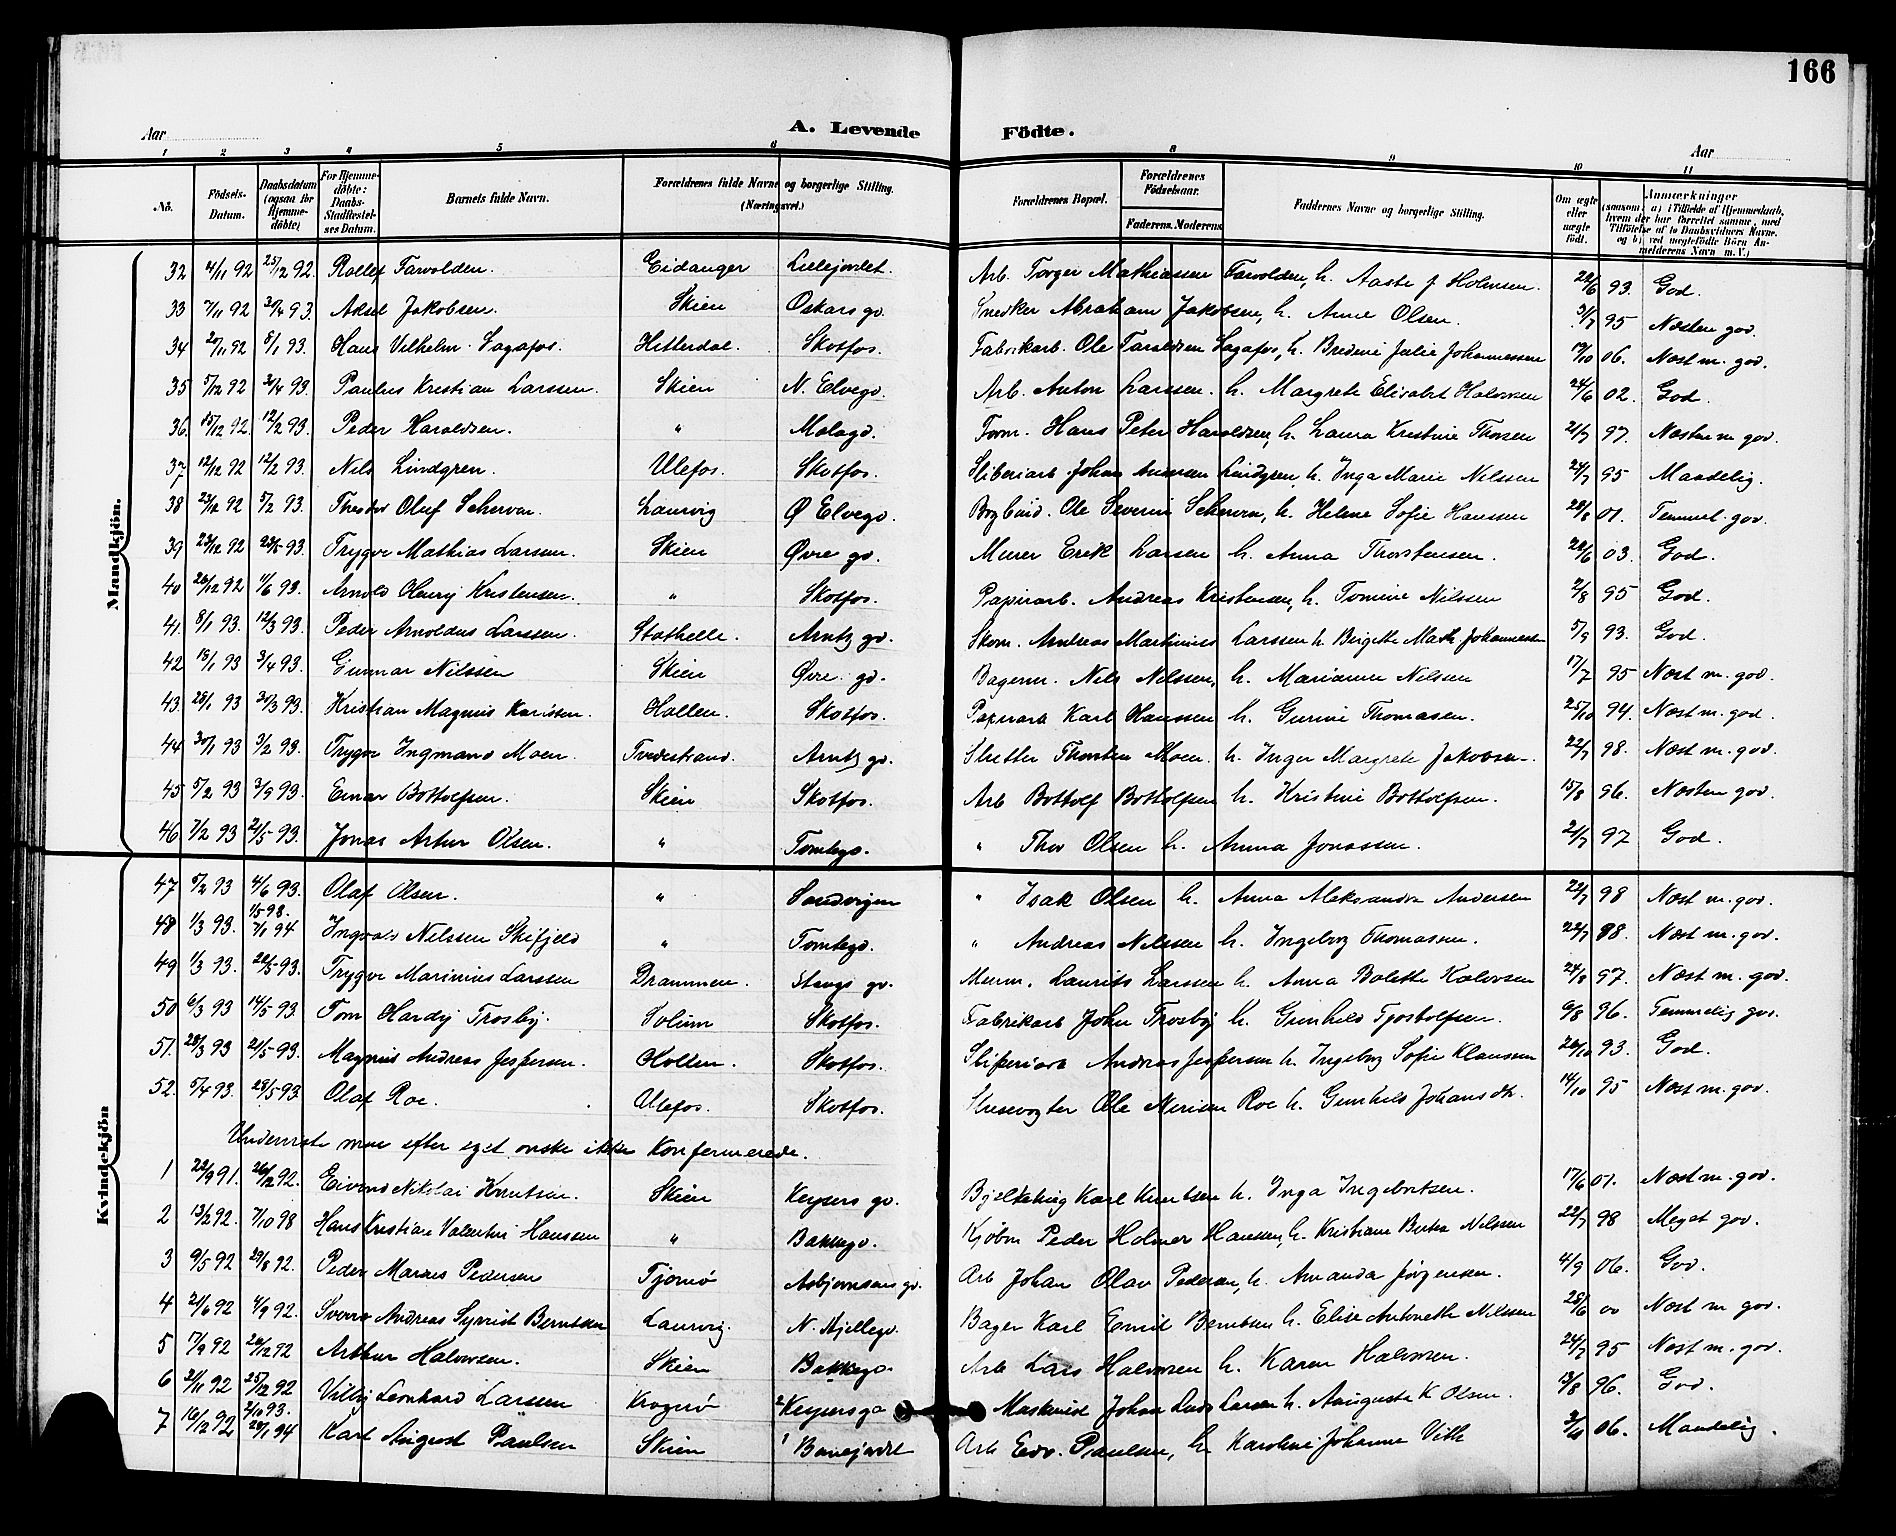 166
Aar
A. Levende Födte.
Aar
1 2 3 4 5 6 8 9 10 11
Nô.
Födsels-Datum.
Daabsdatum (ogsaa for Hjemme-döbte)
For Hjemme-döbte: Daabs-Stadfæstel-ses Datum.
Barnets fulde Navn.
Forældrenes fulde Navne og borgerlige Stilling. (Næringsvei.)
Forældrenes Bopæl.
Forældrenes Födselsaar.
Faderens. Moderens
Faddernes Navne og borgerlige Stilling.
Om ægte eller uægte födt.
Anmærkninger (saasom: a) i Tilfælde af Hjemmedaab, hvem der har forrettet samme, med Tilföielse af to Daabsvidners Navne. og b) ved uegtefödte Börn An-melderens Navn m. V.)
Mandkjön.
32 4/11 92 25/12 92. Rollef Farvolden. Eidanger Lilejordet. Arb. Torger Mathiassen Farvolden, h. Aaste f Holmsen. 22/6 93. God.
33 7/11 92 30/4 93. Aksel Jakobsen. Skien Oskars gd. Snedker Abraham Jakobsen, h. Anne Olsen. 3/7 95 Næsten god.
34 20/11 92 8/1 93. Hans Vilhelm Sagafos. Hitterdal. Skotfos. Fabrikarb. Ole Taraldsen Sagafos, h. Bredine Julie Johannessen 19/10 06. Næst m. god.
35 5/12 92 3/4 93. Paulus Kristian Larssen. Skien N. Elvegd. Arb. Anton Larssen. h. Margrete Elisabet Halvorsen 24/6 02. God.
36. 15/12 92. 12/2 93. Peder Haraldsen. " Molagd. Form. Hans Peter Haraldsen, h. Laura Kristine Thorsen 21/7 97. Næsten m god.
37 12/12 92 12/2 93. Nils Lindgren. Ulefos. Skotfos. Sliberiarb Johan Lindgren, h. Inga Marie Nilssen 24/7 95 Maadelig.
38 23/12 92 5/2 93. Theodor Oluf Scherven. Laurvig Ø Elvegd. Ole Severin Scherven, h. Helene Sofie Hanssen 28/8 01. Temmel. god.
39 23/12 92 23/5 93. Trygve Mathias Larssen. Skien Øvre gd. Murer Erik Larsen h. Anna Thorstensen. 22/6 03. God.
40 26/12 92 1/6 93. Arnold Henry Kristensen. " Skotfos. Papirarb. Andreas Kristensen, h. Tomine Nilssen 2/8 95 God.
41. 8/1 93. 12/3 93. Peder Arnoldus Larssen. Stathelle. Arntz gd. Skom. Andreas Martinius Larssen h. Birgitte Math. Johannessen 5/9 93. God.
42 18/1 93 3/4 93. Gunnar Nilssen Skien Øvre gd. Bagerm. Nils Nilssen, h. Marianne Nilssen 17/7 95 Næst m. god.
43. 28/1 93 30/3 93. Kristian Magnus Karlsen. Hollen. Skotfos. Papirarb Karl Hanssen h. Gurine Thomasen. 25/10 94. Næst m. god.
44 30/1 93 3/2 93. Trygve Ingmand Moen. Tvedestrand. Arntz gd. Thorsten Moen. h. Inger Margrete Jakobsen. 22/7 98. Næst m. god.
45 5/2 93 3/9 93. Einar Bottolfsen. Skien Skotfos. Arb Bottolf Bottolfsen h. Kristine Bottolfsen. 15/8 96. Næsten god.
46 7/2 93 21/5 93. Jonas Artur Olsen. " Tomtegd. " Thor Olsen h. Anna Jonassen. 21/7 97 God.
Kvindekjön
47 5/2 93 4/6 93. Olaf Olsen. " Sandvigen " Isak Olsen h. Anna Aleksandra Andersen 22/7 98 Næst m. god.
1/5 98.
48 1/3 93. 7/1 94 Ingvald Nilssen Skifjeld " Tomtegd. " Andreas Nilssen h. Ingeborg Thomassen. 22/7 88. Næst m. god.
49 1/3 93. 22/5 93. Trygve Marinius Larssen Drammen. Stangs gd. Murm. Laurits Larssen h. Anna Bolette Halvorsen 24/8 97. Næst m. god.
50 6/3 93 14/5 93. Tom Hardy Trosby. Solum Skotfos. Fabrikarb John Trosby h. Gunhild Tjostolfsen. 9/8 96. Temmelig god.
51. 28/3 93 21/5 93. Magnus Andreas Jespersen. Hollen. Skotfos. Andreas Jespersen h. Ingeborg Sofie Klaussen 26/10 93. God.
52. 5/4 93. 28/5 93 Olaf Roe. Ulefos. Skotfos. Ole Roe h. Gunhild Johansdtr. 14/10 95 Næst m. god.
efter eget ønske ikke Konfirmerede.
1 22/9 91. 26/12 92. Eivind Nikolai Knutsen. Skien Keysers gd. Karl Knutsen h. Inga Ingebretsen. 17/6 01. Næst m. god.
2 13/2 92. 7/10 98 Hans Kristian Valentin Hanssen " Bakkegd. Kjøbm Peder Holmer Hanssen, h. Kristiane Berthe Nilssen 22/7 98 Meget god.
3 9/5 92 29/8 92. Peder Marius Pedersen Tjømø Asbjørnsens gd. Arb Johan Olav Pedersen, h. Amanda Jørgensen. 4/9 06. God.
4 21/6 92 4/9 92. Sverre Andreas Syvrist Berntsen Laurvig. N. Hjellegd. Bager Karl Emil Berntsen h. Elise Antonette Nilssen 28/6 00 Næst m god.
5 17/9 92 26/12 92 Arthur Halvorsen. Skien Bakkegd. Arb Lars Halvorsen h. Karen Halvorsen. 24/7 95 Næst m. god.
6 3/11 92 25/12 92 Villy Leonhard Larssen Kragerø 2 Keysers gd Maskinist Johan Ludv Larsen h. Augusta K Olsen. 13/8 96. God.
2/10 93.
7 16/12 92 28/1 94 Karl August Paulsen Skien 1 Banejordet Arb Edv. Paulsen, h. Karoline Johanne Vith 3/11 06. Maadelig.